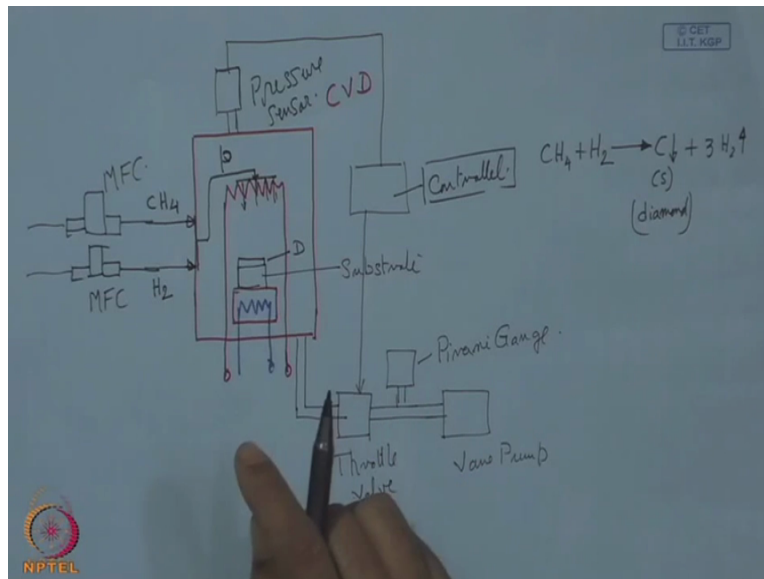 © CET
I.I.T. KGP
Pressure
Sensor. CVD
MFC.
CH4
MFC
H2
D
Substrate
Controller.
CH4 + H2 → C↓ + 3H2↑
(s)
(diamond)
Pirani Gauge.
Throttle
Valve
Vane Pump
NPTEL